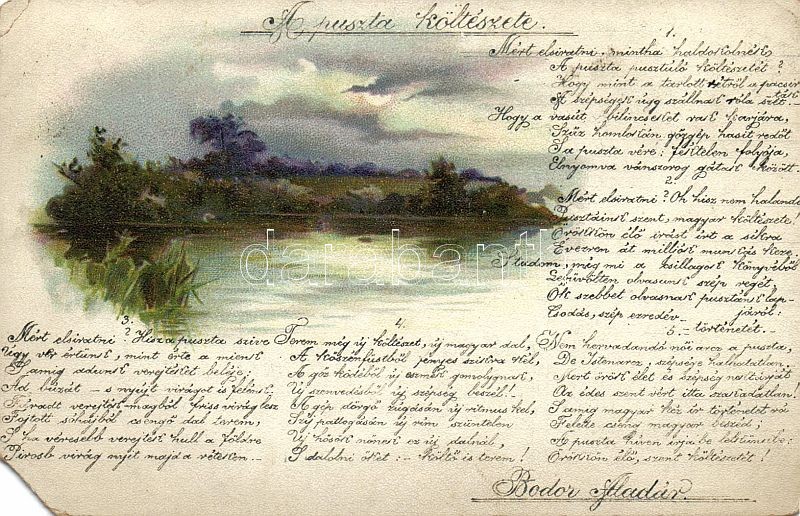 A puszta költészete.
1.
Mért elsiratni, mintha haldokolnék
A puszta pusztuló költészetét?
Hogy mint a tarlott rétről a pacsir-
ták
A szépségek úgy szállnak róla szét. -
Hogy a vasút bilincseket rak karjára,
Szűz homlokán gőzgép hasít redőt
S a puszta vére: féktelen folyója,
Elnyomva vánszorog gátak között.
2.
Mért elsiratni? Oh hisz nem halandó
Pusztáink szent, magyar költészete!
Örökkön élő írást írt a síkra
Ezeren át milliók munkás keze.
S tudom, míg mi a csillagok könyvéből
Letűnten olvasunk szép regét,
Ők szebbet olvasnak pusztánk lap-
járól:
Csodás, szép ezredév
- történetét. -
3.
Mért elsiratni? Hisz a puszta szíve
Úgy vér értünk, mint érte a mienk
S amíg adunk verejtéket beléje,
Ad búzát - s nyújt virágot is felénk.
Fáradt verejték magból friss virág lesz
Fojtott sóhajból csengő dal terem,
S ha véresebb verejték hull a földre
Pirosb virág nyít majd a réteken. -
4.
Terem még új költészet, új magyar dal,
A köszénfüstből fényes szikra kél,
A gőz ködéből új eszmék gomolygnak,
Új szenvedésből új szépség beszél!
A gép dörgő zúgásán új ritmus kel,
Szíj pattogásán új rím születen
Új hősök nőnek ez új dalnál,
S dalolni őket: - költő is terem!
5.
Nem hervadandó női arc a puszta,
De Istenarc, szépsége halhatatlan.
Mert örök élet és szépség nektárját
Az édes szent vért itta szakadatlan.
S amíg magyar kéz ír történetet rá
Felette cseng magyar beszéd;
A puszta híven írja be lelkünkbe:
Örökkön élő, szent költészetét!
Bodor Aladár.
darabanth